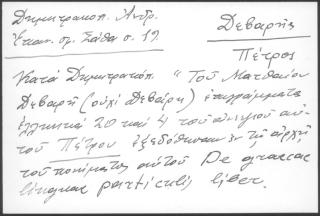 Δημητρακοπ. Ἀνδρ.
Ἐπαν. σφ. Σάθα σ. 19
Δεβαρῆς
Πέτρος
Κατὰ Δημητρακόπ. "Τοῦ Ματθαίου
Δεβαρῆ (οὐχὶ Δεβάρη) ἐπιγράμματα
ἑλληνικὰ 20 καὶ 4 τοῦ ἀνεψιοῦ αὐ-
τοῦ Πέτρου ἐξεδόθησαν ἐν τῇ ἀρχῇ
τοῦ πονήματος αὐτοῦ De graecae
linguae particulis liber.